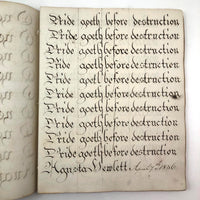 Pride goeth before destruction
Pride goeth before destruction
Pride goeth before destruction
Pride goeth before destruction
Pride goeth before destruction
Pride goeth before destruction
Pride goeth before destruction
Pride goeth before destruction
Pride goeth before destruction
Pride goeth before destruction
Hewlett